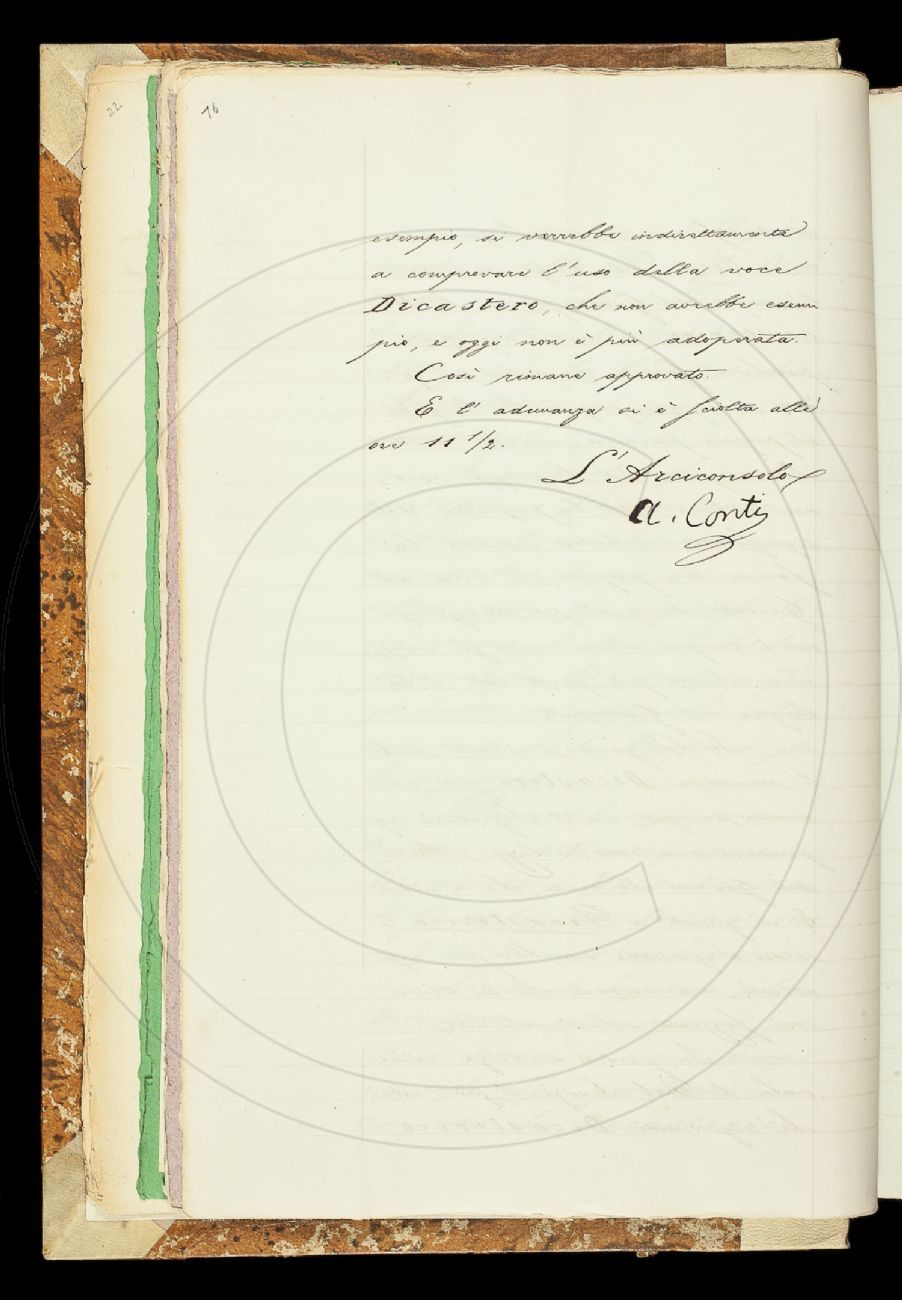 22
76
esempio, si verrebbe indirettamente
a comprovare l'uso della voce
Dicastero, che non avrebbe esem
pio, e oggi non è più adoperata.
Così rimane approvato.
E l'adunanza si è sciolta alle
ore 11 1/2.
L'Arciconsolo
A. Conti